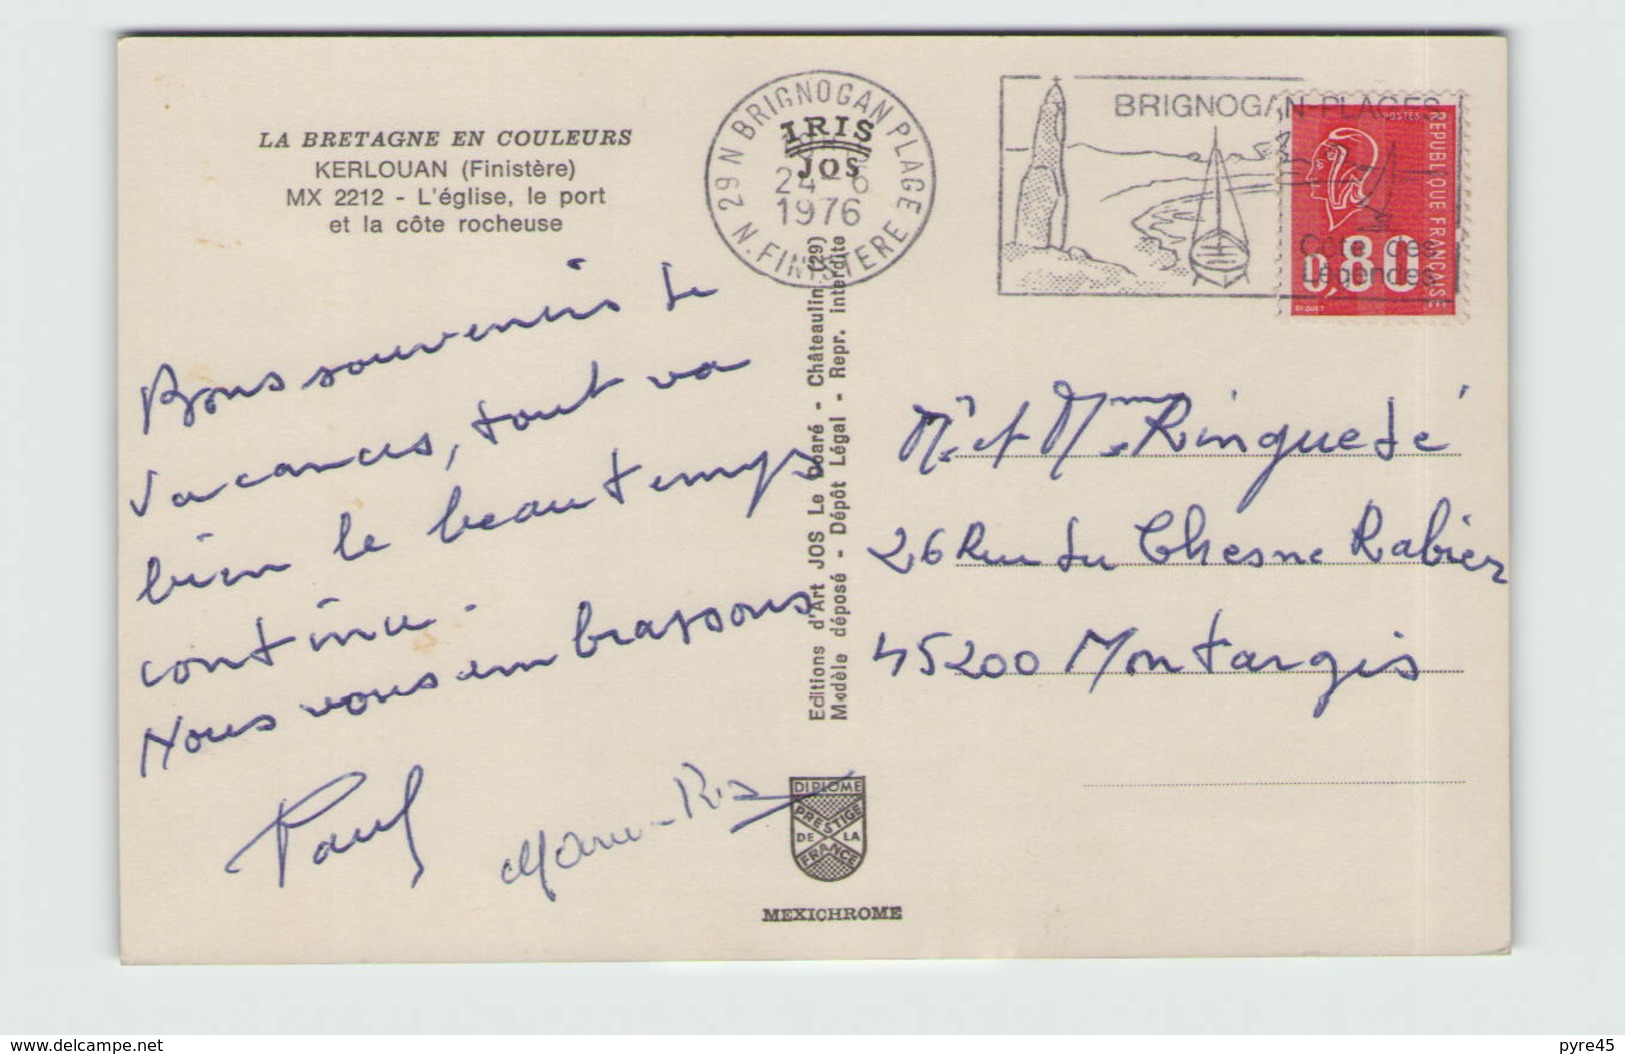 LA BRETAGNE EN COULEURS
KERLOUAN (Finistère)
MX 2212 - L'église, le port
et la côte rocheuse
29 N BRIGNOGAN PLAGE
N. FINISTERE
IRIS
JOS
24 - 6
1976
BRIGNOGAN-PLAGES
Côte des
Légendes
POSTES
REPUBLIQUE FRANÇAISE
0,80
BEQUET
Bons souvenirs de
vacances, tout va
bien le beau temps
continue.
Nous vous embrassons
Paul
Editions d'Art JOS Le Doaré - Châteaulin (29)
Modèle déposé - Dépôt Légal - Repr. interdite
Mr et Mme Ringuedé
26 Rue du Chesne Rabier
45200 Montargis
DIPLOME
PRESTIGE
DE LA
FRANCE
MEXICHROME
www.delcampe.net
pyre45